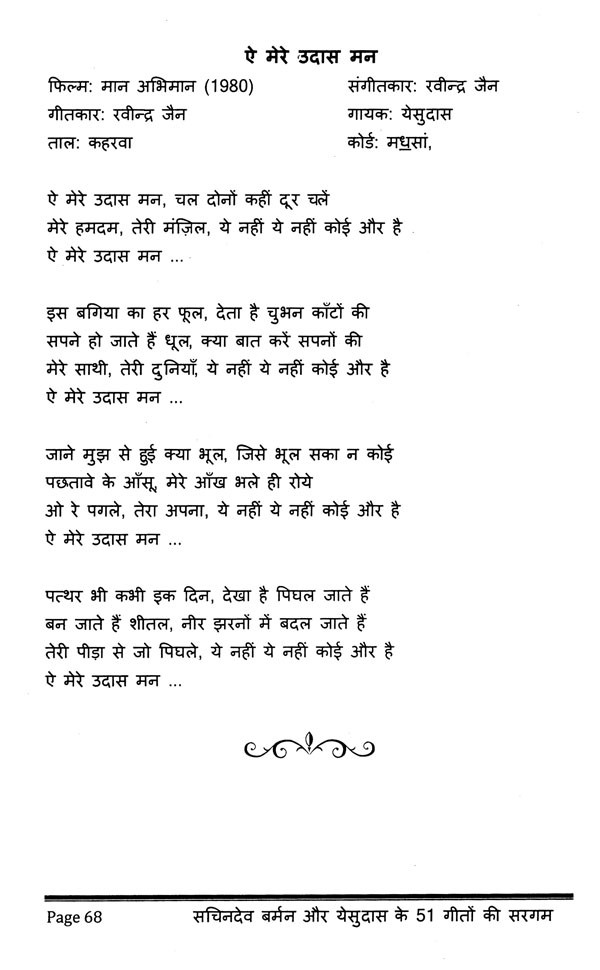 ऐ मेरे उदास मन
फिल्म: मान अभिमान (1980) संगीतकार: रवीन्द्र जैन
गीतकार: रवीन्द्र जैन गायक: येसुदास
ताल: कहरवा कोर्ड: मध॒सां,
ऐ मेरे उदास मन, चल दोनों कहीं दूर चलें
मेरे हमदम, तेरी मंज़िल, ये नहीं ये नहीं कोई और है
ऐ मेरे उदास मन ...
इस बगिया का हर फूल, देता है चुभन काँटों की
सपने हो जाते हैं धूल, क्या बात करें सपनों की
मेरे साथी, तेरी दुनियाँ, ये नहीं ये नहीं कोई और है
ऐ मेरे उदास मन ...
जाने मुझ से हुई क्या भूल, जिसे भूल सका न कोई
पछतावे के आँसू, मेरे आँख भले ही रोये
ओ रे पगले, तेरा अपना, ये नहीं ये नहीं कोई और है
ऐ मेरे उदास मन ...
पत्थर भी कभी इक दिन, देखा है पिघल जाते हैं
बन जाते हैं शीतल, नीर झरनों में बदल जाते हैं
तेरी पीड़ा से जो पिघले, ये नहीं ये नहीं कोई और है
ऐ मेरे उदास मन ...
Page 68 सचिनदेव बर्मन और येसुदास के 51 गीतों की सरगम